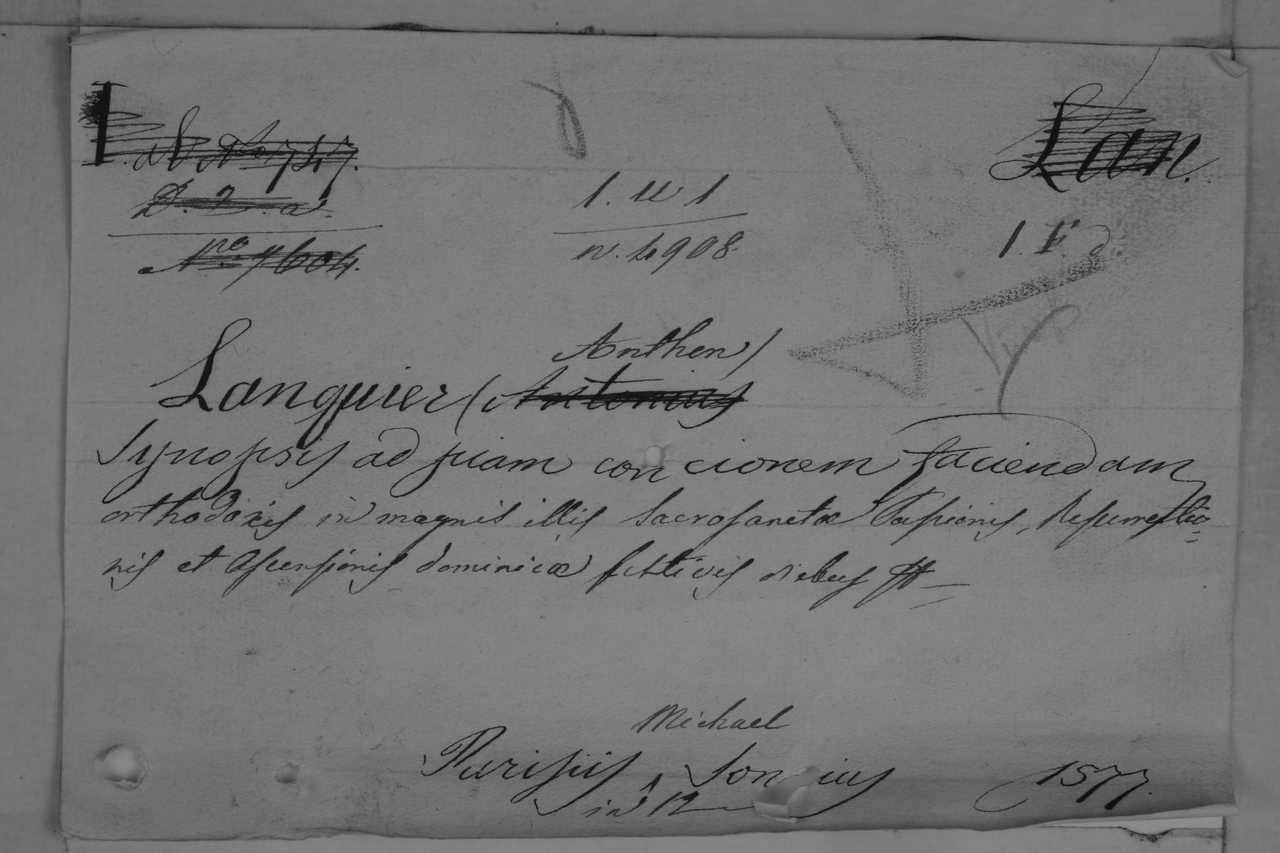 ab No 747. Lan.
D. 2. a.
1. u 1
No 7604. n. 4908. 1. F.
Anthen)
Lanquier (Antonius
Synopsis ad piam concionem faciendam
orthodoxis in magnis illis Sacrosanctæ Passionis, Resurrectio-
nis et Ascensionis dominicæ festivis diebus
Michael
Parisiis Sonnius 1577.
in 12